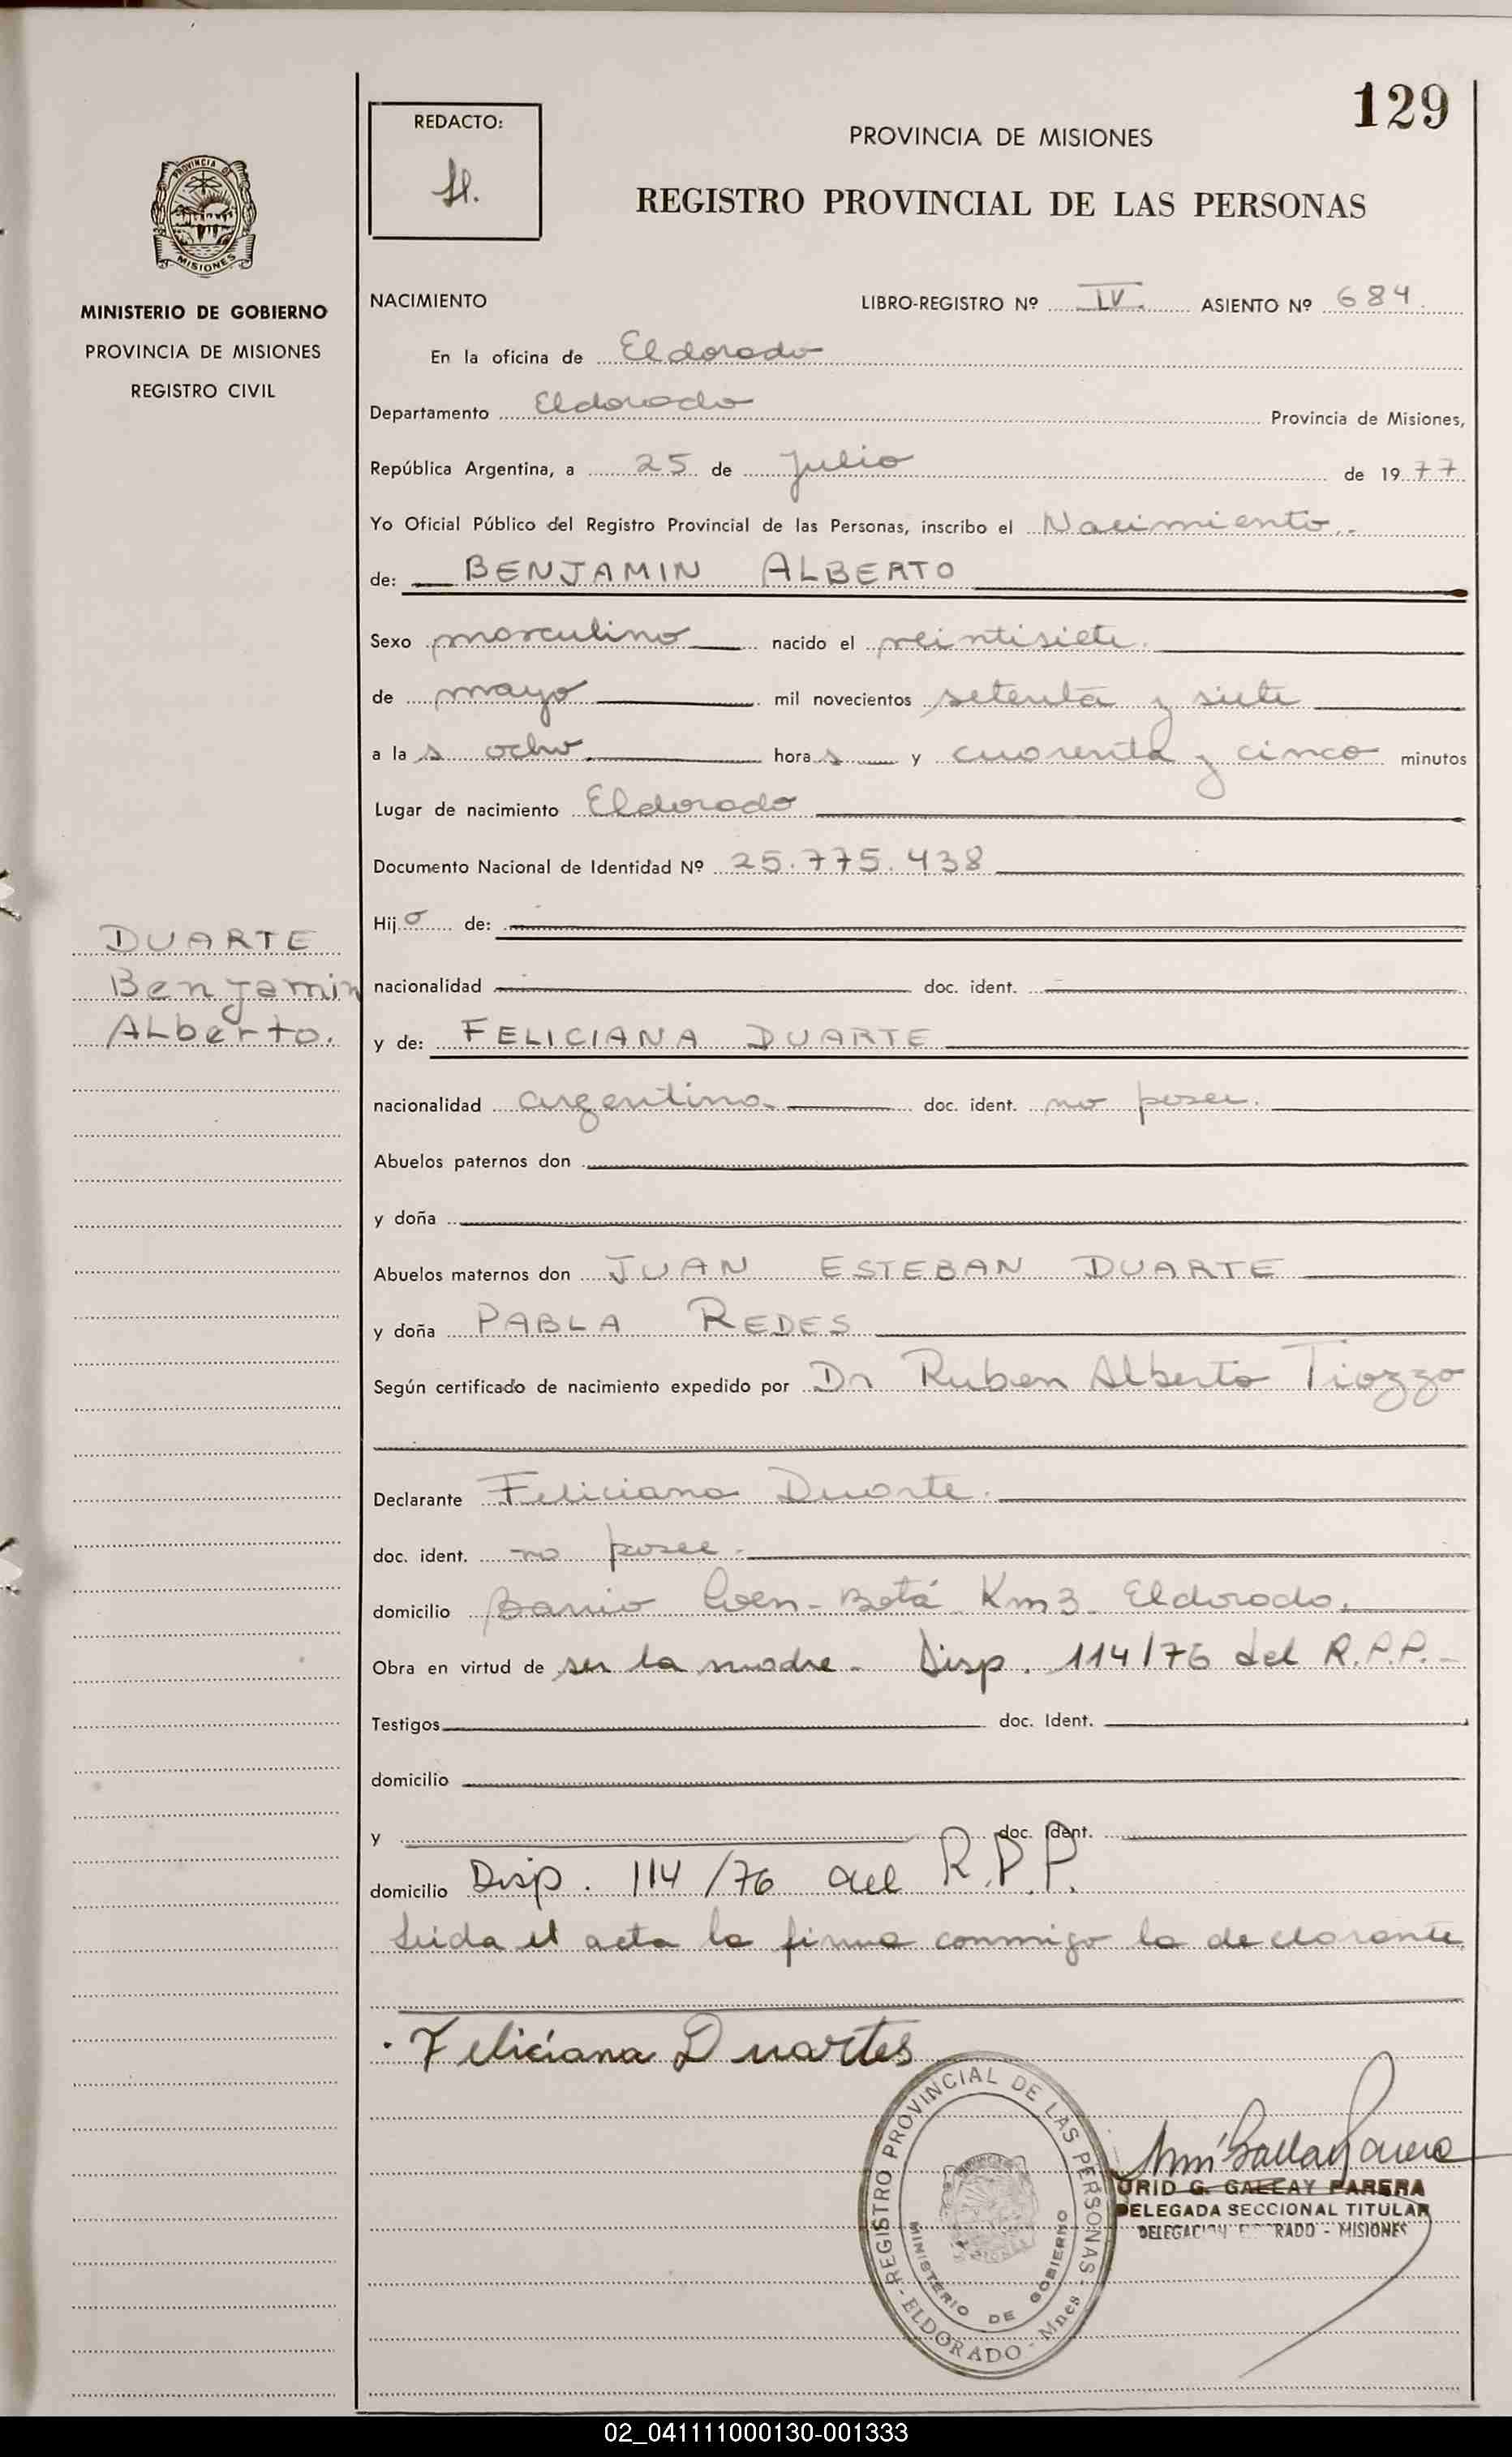 129
REDACTO:
PROVINCIA DE MISIONES
REGISTRO PROVINCIAL DE LAS PERSONAS
PROVINCIA DE
MISIONES
MINISTERIO DE GOBIERNO
PROVINCIA DE MISIONES
REGISTRO CIVIL
NACIMIENTO LIBRO-REGISTRO Nº IV. ASIENTO Nº 684.
En la oficina de Eldorado
Departamento Eldorado Provincia de Misiones,
República Argentina, a 25 de Julio de 1977
Yo Oficial Público del Registro Provincial de las Personas, inscribo el Nacimiento.-
de: BENJAMIN ALBERTO
Sexo masculino nacido el veintisiete.
de mayo mil novecientos setenta y siete
a las ocho. horas y cuarenta y cinco minutos
Lugar de nacimiento Eldorado
Documento Nacional de Identidad Nº 25.775.438
Hijo de:
DUARTE
Benjamin
Alberto.
nacionalidad doc. ident.
y de: FELICIANA DUARTE
nacionalidad argentina. doc. ident. no posee.
Abuelos paternos don
y doña
Abuelos maternos don JUAN ESTEBAN DUARTE
y doña PABLA REDES
Según certificado de nacimiento expedido por Dr Ruben Alberto Tiozzo
Declarante Feliciana Duarte.
doc. ident. no posee.
domicilio Barrio Coen-Betá Km3. Eldorado.
Obra en virtud de ser la madre. Disp. 114/76 del R.P.P.-
Testigos doc. Ident.
domicilio
y doc. Ident.
domicilio Disp. 114/76 del R.P.P.
Leida el acta la firma conmigo la declarante
Feliciana Duartes
REGISTRO PROVINCIAL DE LAS PERSONAS
MINISTERIO DE GOBIERNO
ELDORADO - Mnes
URID G. GALLAY PARERA
DELEGADA SECCIONAL TITULAR
DELEGACION ELDORADO - MISIONES
02_041111000130-001333